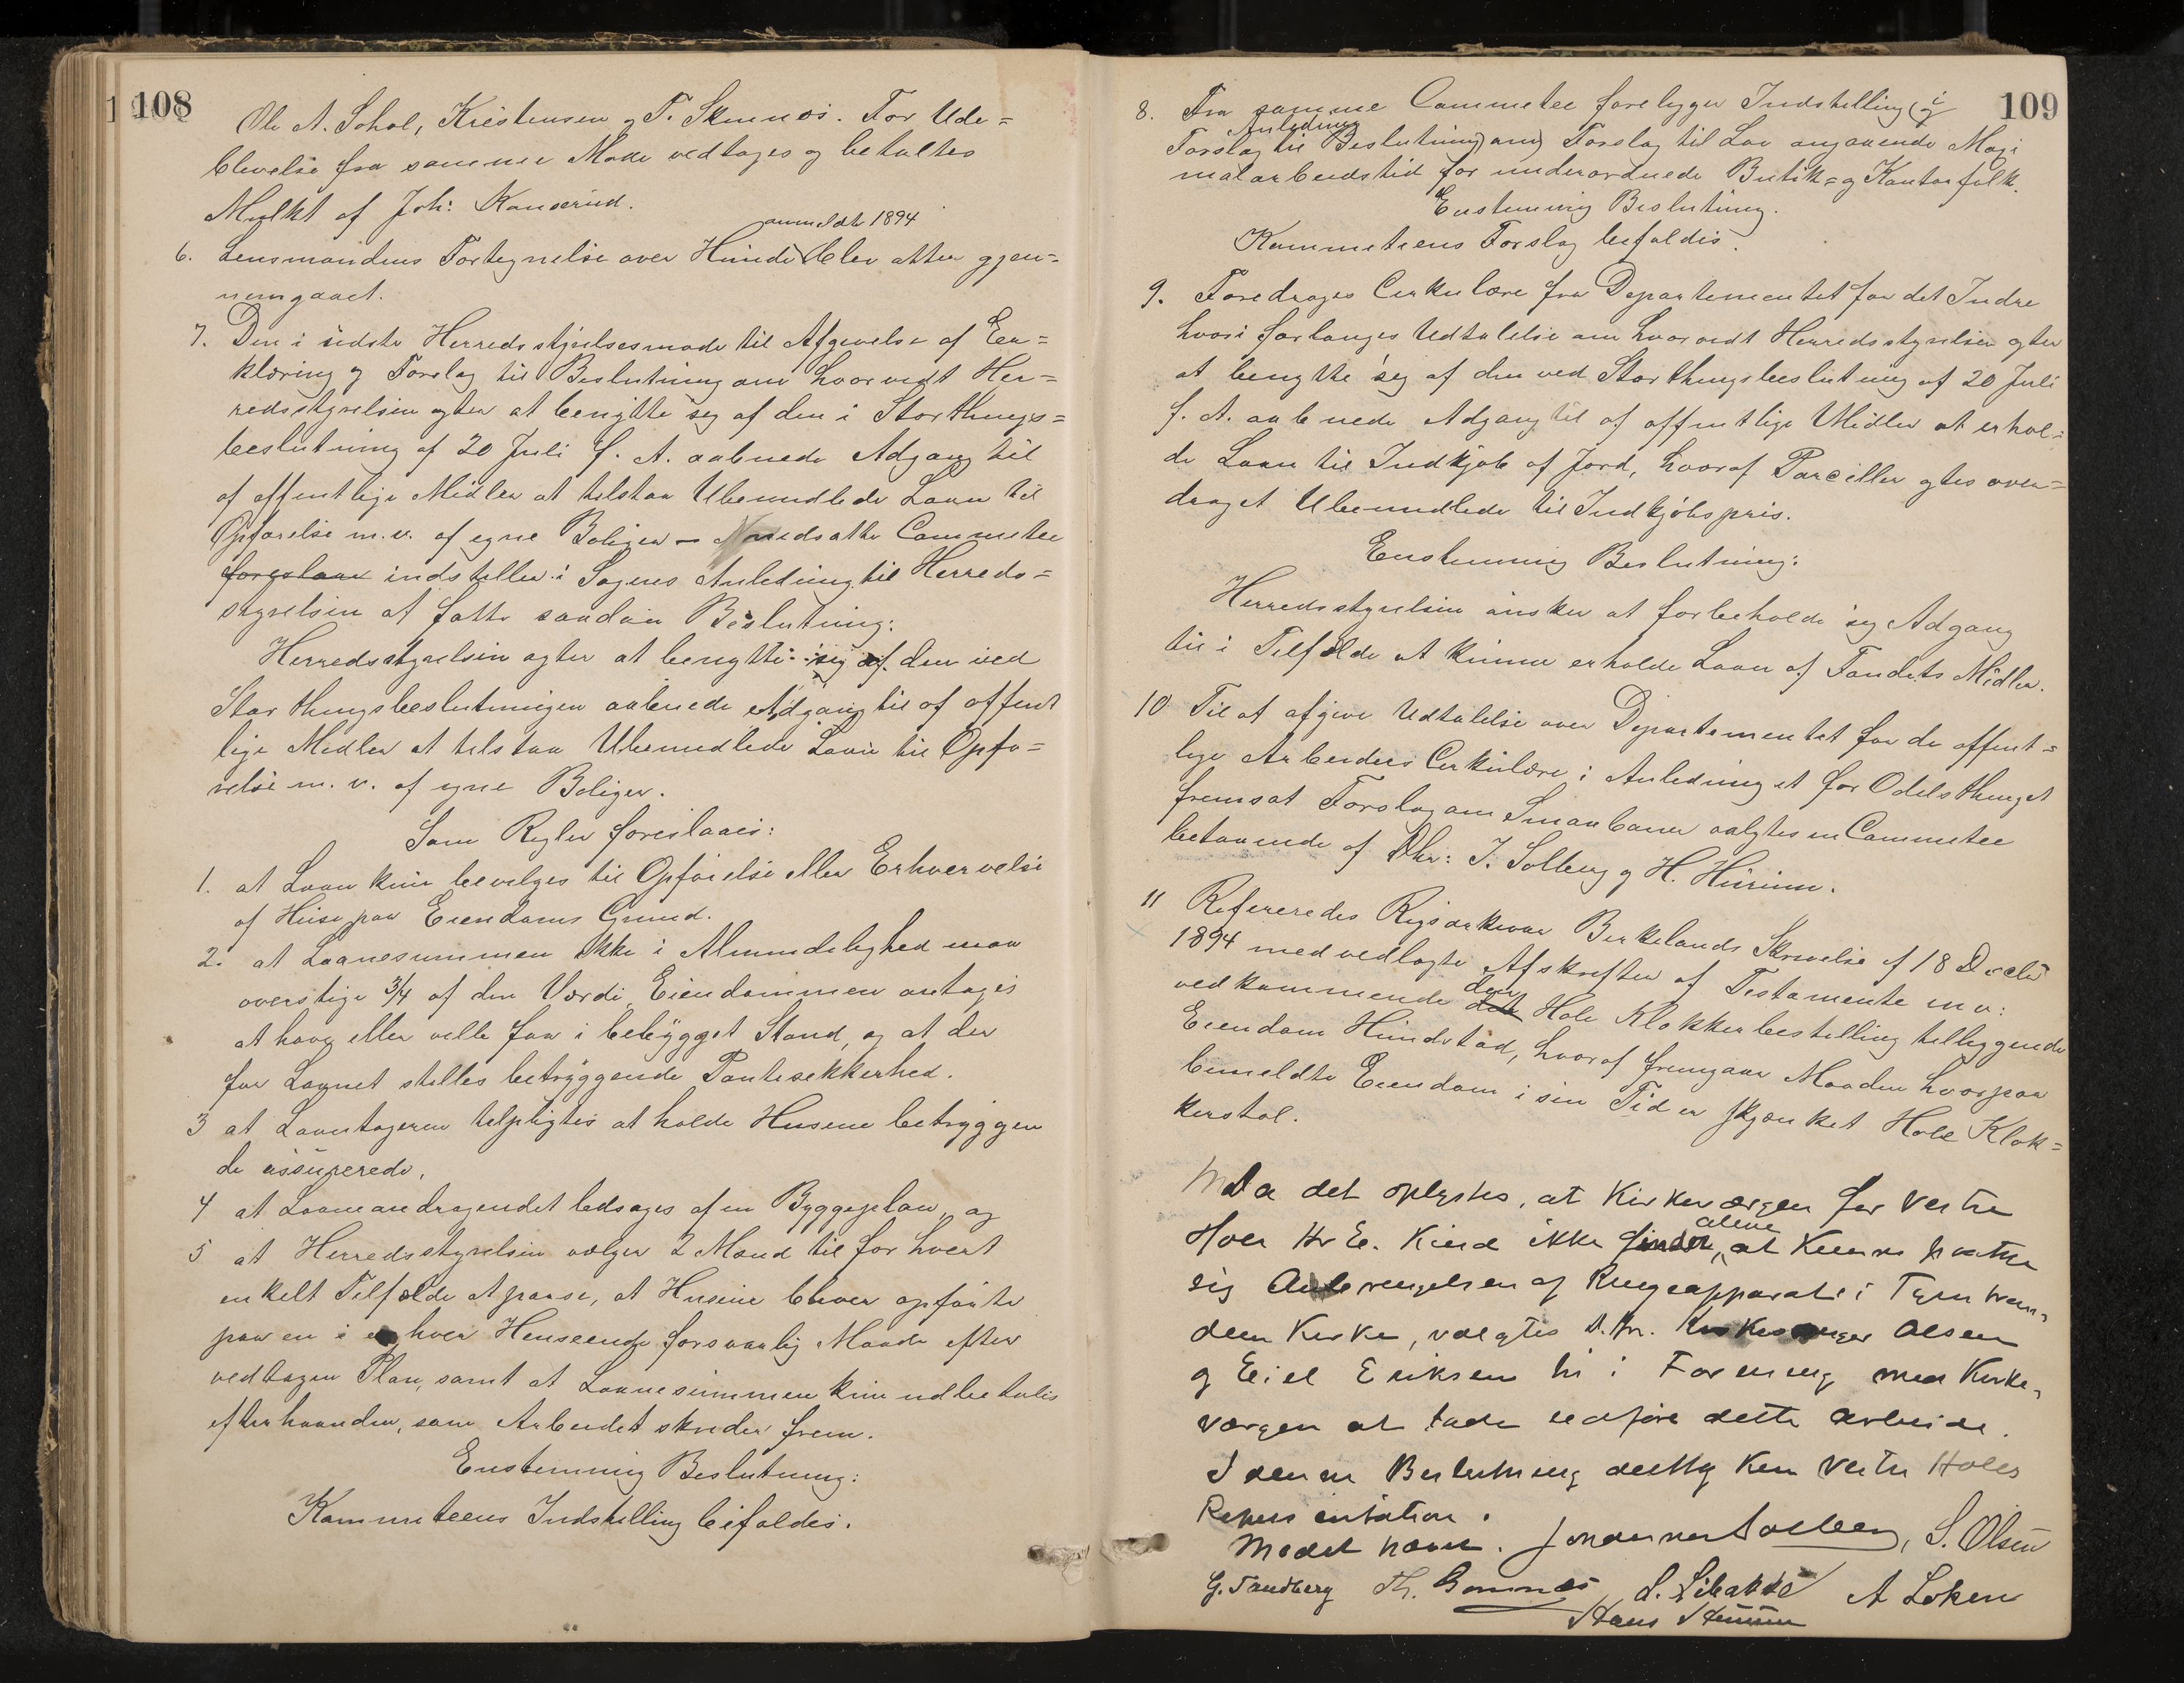 108
Ole A. Sohol, Kristensen og T. Skinnæs. For Ude=
blevelse fra samme Møde vedtages og betaltes
Mulkt af Joh: Kauserud.
anmeldte 1894
6. Lensmandens Fortegnelse over Hunde blev atter gjen=
nemgaaet.
7. Den i sidste Herredsstyrelsesmøde til Afgivelse af Er=
klæring og Forslag til Beslutning om hvorvidt Her=
redsstyrelsen agter at benytte sig af den i Storthings=
beslutning af 20 Juli f. A. aabnede Adgang til
af offentlige Midler at tilstaa Ubemidlede Laan til
Opførelse m.v. af egne Boliger – Nedsatte Committee
foreslaar indstiller i Sagens Anledning til Herreds=
styrelsen at fatte saadan Beslutning:
Herredsstyrelsen agter at benytte sig af den ved
Storthingsbeslutningen aabnede Adgang til af offent
lige Midler at tilstaa Ubemidlede Laan til Opfø=
relse m. v. af egne Boliger.
Som Regler foreslaaes:
1. at Laan kun bevilges til Opførelse eller Erhvervelse
af Huse paa Eiendoms Grund.
2. at Laanesummen ikke i Almindelighed maa
overstige 3/4 af den Værdi Eiendommen antages
at have eller ville faa i bebygget Stand, og at der
for Laanet stilles betryggende Pantesikkerhed.
3 at Laantageren tilpligtes at holde Husene betryggen
de assurerede.
4 at Laaneandragendet ledsages af en Byggeplan, og
5 at Herredsstyrelsen vælger 2 Mænd til for hvert
enkelt Tilfælde at paase, at Husene bliver opførte
paa en i enhver Henseende forsvarlig Maade efter
vedtagen Plan, samt at Laanesummen kun udbetales
efterhaanden, som Arbeidet skrider frem.
Enstemmig Beslutning:
Kommiteens Indstilling bifaldes.
109
8. Fra samme Committee foreligger Indstilling (i
Anledning
Forslag til Beslutning) om Forslag til Lov angaaende Maxi
malarbeidstid for underordnede Butik= og Kontorfolk.
Enstemmig Beslutning.
Kommiteens Forslag bifaldes.
9. Foredroges Cirkulære fra Departementet for det Indre
hvori forlanges Udtalelse om hvorvidt Herredsstyrelsen agter
at benytte sig af den ved Storthingsbeslutning af 20 Juli
f. A. aabnede Adgang til af offentlige Midler at erhol=
de Laan til Indkjøb af Jord, hvoraf Parceller agtes over=
draget Ubemidlede til Indkjøbspris.
Enstemmig Beslutning:
Herredsstyrelsen ønsker at forbeholde sig Adgang
til i Tilfælde at kunne erholde Laan af Fondets Midler.
10 Til at afgive Udtalelse over Departementet for de offent=
lige Arbeiders Cirkulære i Anledning et for Odelsthinget
fremsat Forslag om Smaabaner valgtes en Committee
bestaaende af Dhr: J. Solberg og H. Hurum.
11 Refereredes Rigsarkivar Birkelands Skrivelse af 18 Decbr
1894 med vedlagte Afskrifter af Testamente m.v:
den
vedkommende det Hole Klokkerbestilling tilliggende
Eiendom Hundstad, hvoraf fremgaar Maaden hvorpaa
bemeldte Eiendom i sin Tid er skjænket Hole Klok=
kerstol.
Da det oplystes, at Kirkeværgen for Vestre
alene
Hole Hr E. Kind ikke finder, at kunne paatage
sig Anbringelsen af Ringeapparat i Tyristran=
dens Kirke, valgtes D.hr. Kirkesanger Olsen
og Eiel Eriksen til i Forening med Kirke=
værgen at lade udføre dette Arbeide.
I denne Beslutning deltog kun Vestre Holes
Repræsentation.
Mødet hævet. Solberg, S. Olsen
G. Sandberg Th. Bønsnes A Løken
Hans Hurum